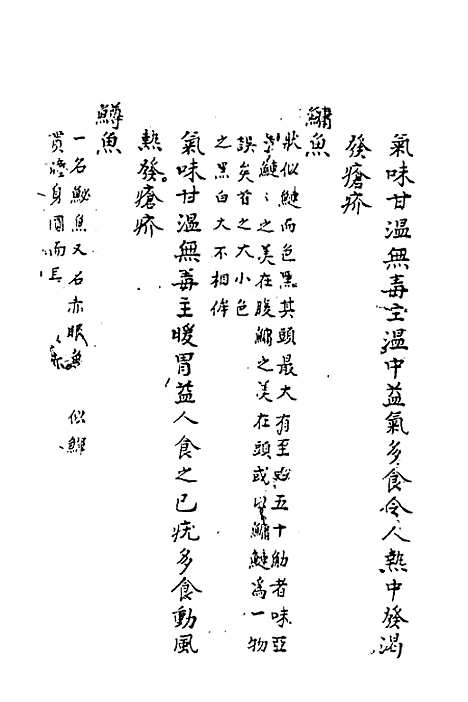 氣味甘溫無毒主溫中益氣多食令人熱中發渴
發瘡疥
鱅魚
狀似鰱而色黑其頭最大有至四五十觔者味亞
鰱鰱之美在腹鱅之美在頭或以鱅鰱爲一物
誤矣首之大小色
之黑白大不相侔
氣味甘溫無毒主暖胃益人食之已疣多食動風
熱發瘡疥
鱒魚
一名鮅魚又名赤眼魚 似鯶
身圓而長